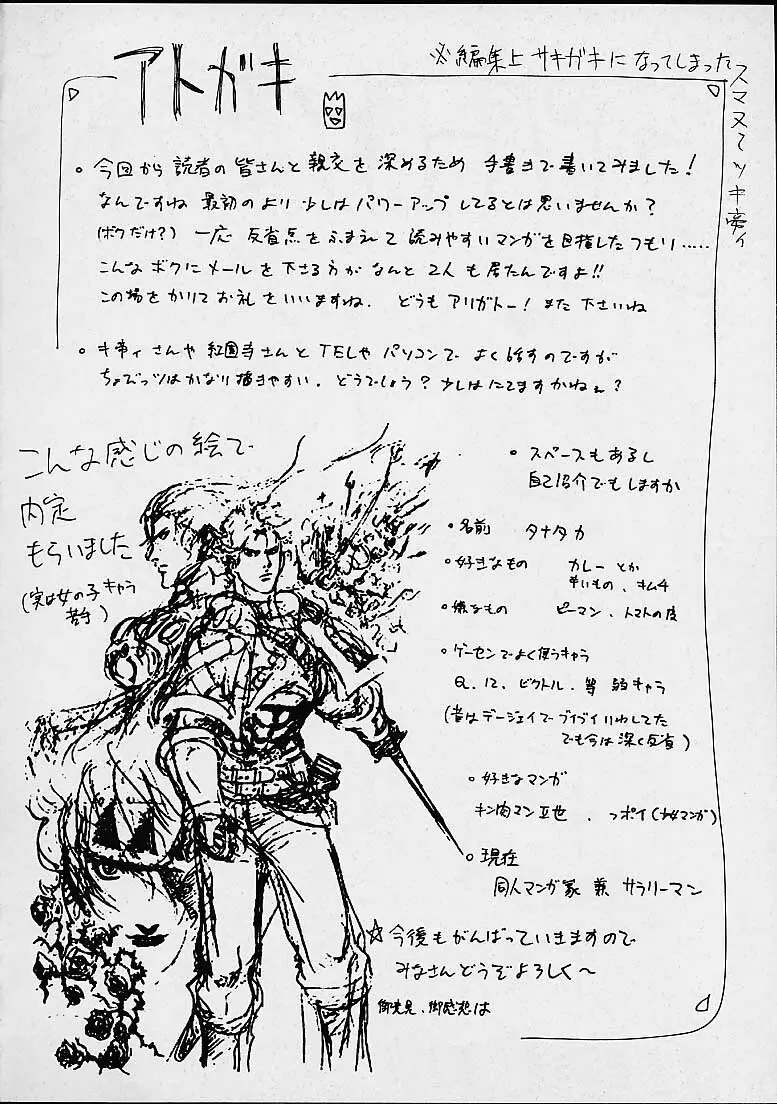 アトガキ
※編集上 サキガキになってしまった
スマヌ
。今回から読者の皆さんと親交を深めるため 手書きで書いてみました!
なんですね 最初のより少しはパワーアップしてるとは思いませんか?
(ボクだけ?) 一応 反省点をふまえて読みやすいマンガを目指したつもり.....
こんなボクにメールを下さる方がなんと2人も居たんですよ!!
この場をかりてお礼をいいますね. どうもアリガトー! また下さいね
。キ帝ィさんや紅国寺さんとTELやパソコンでよく話すのですが
ちょびっツはかなり描きやすい. どうでしょう? 少しはにてますかねぇ?
こんな感じの絵で
内定
もらいました
(実は女の子キャラ
苦手)
。スペースもあるし
自己紹介でもしますか
。名前 タナタカ
。好きなもの カレーとか
辛いもの、キムチ
。嫌なもの ピーマン、トマトの皮
。ゲーセンでよく使うキャラ
Q. 12. ビクトル. 等 弱キャラ
(昔はデージェイでブイブイいわしてた
でも今は深く反省)
。好きなマンガ
キン肉マンⅡ世 、っポイ(少女マンガ)
。現在
同人マンガ家 兼 サラリーマン
☆今後もがんばっていきますので
みなさんどうぞよろしく〜
御意見、御感想は